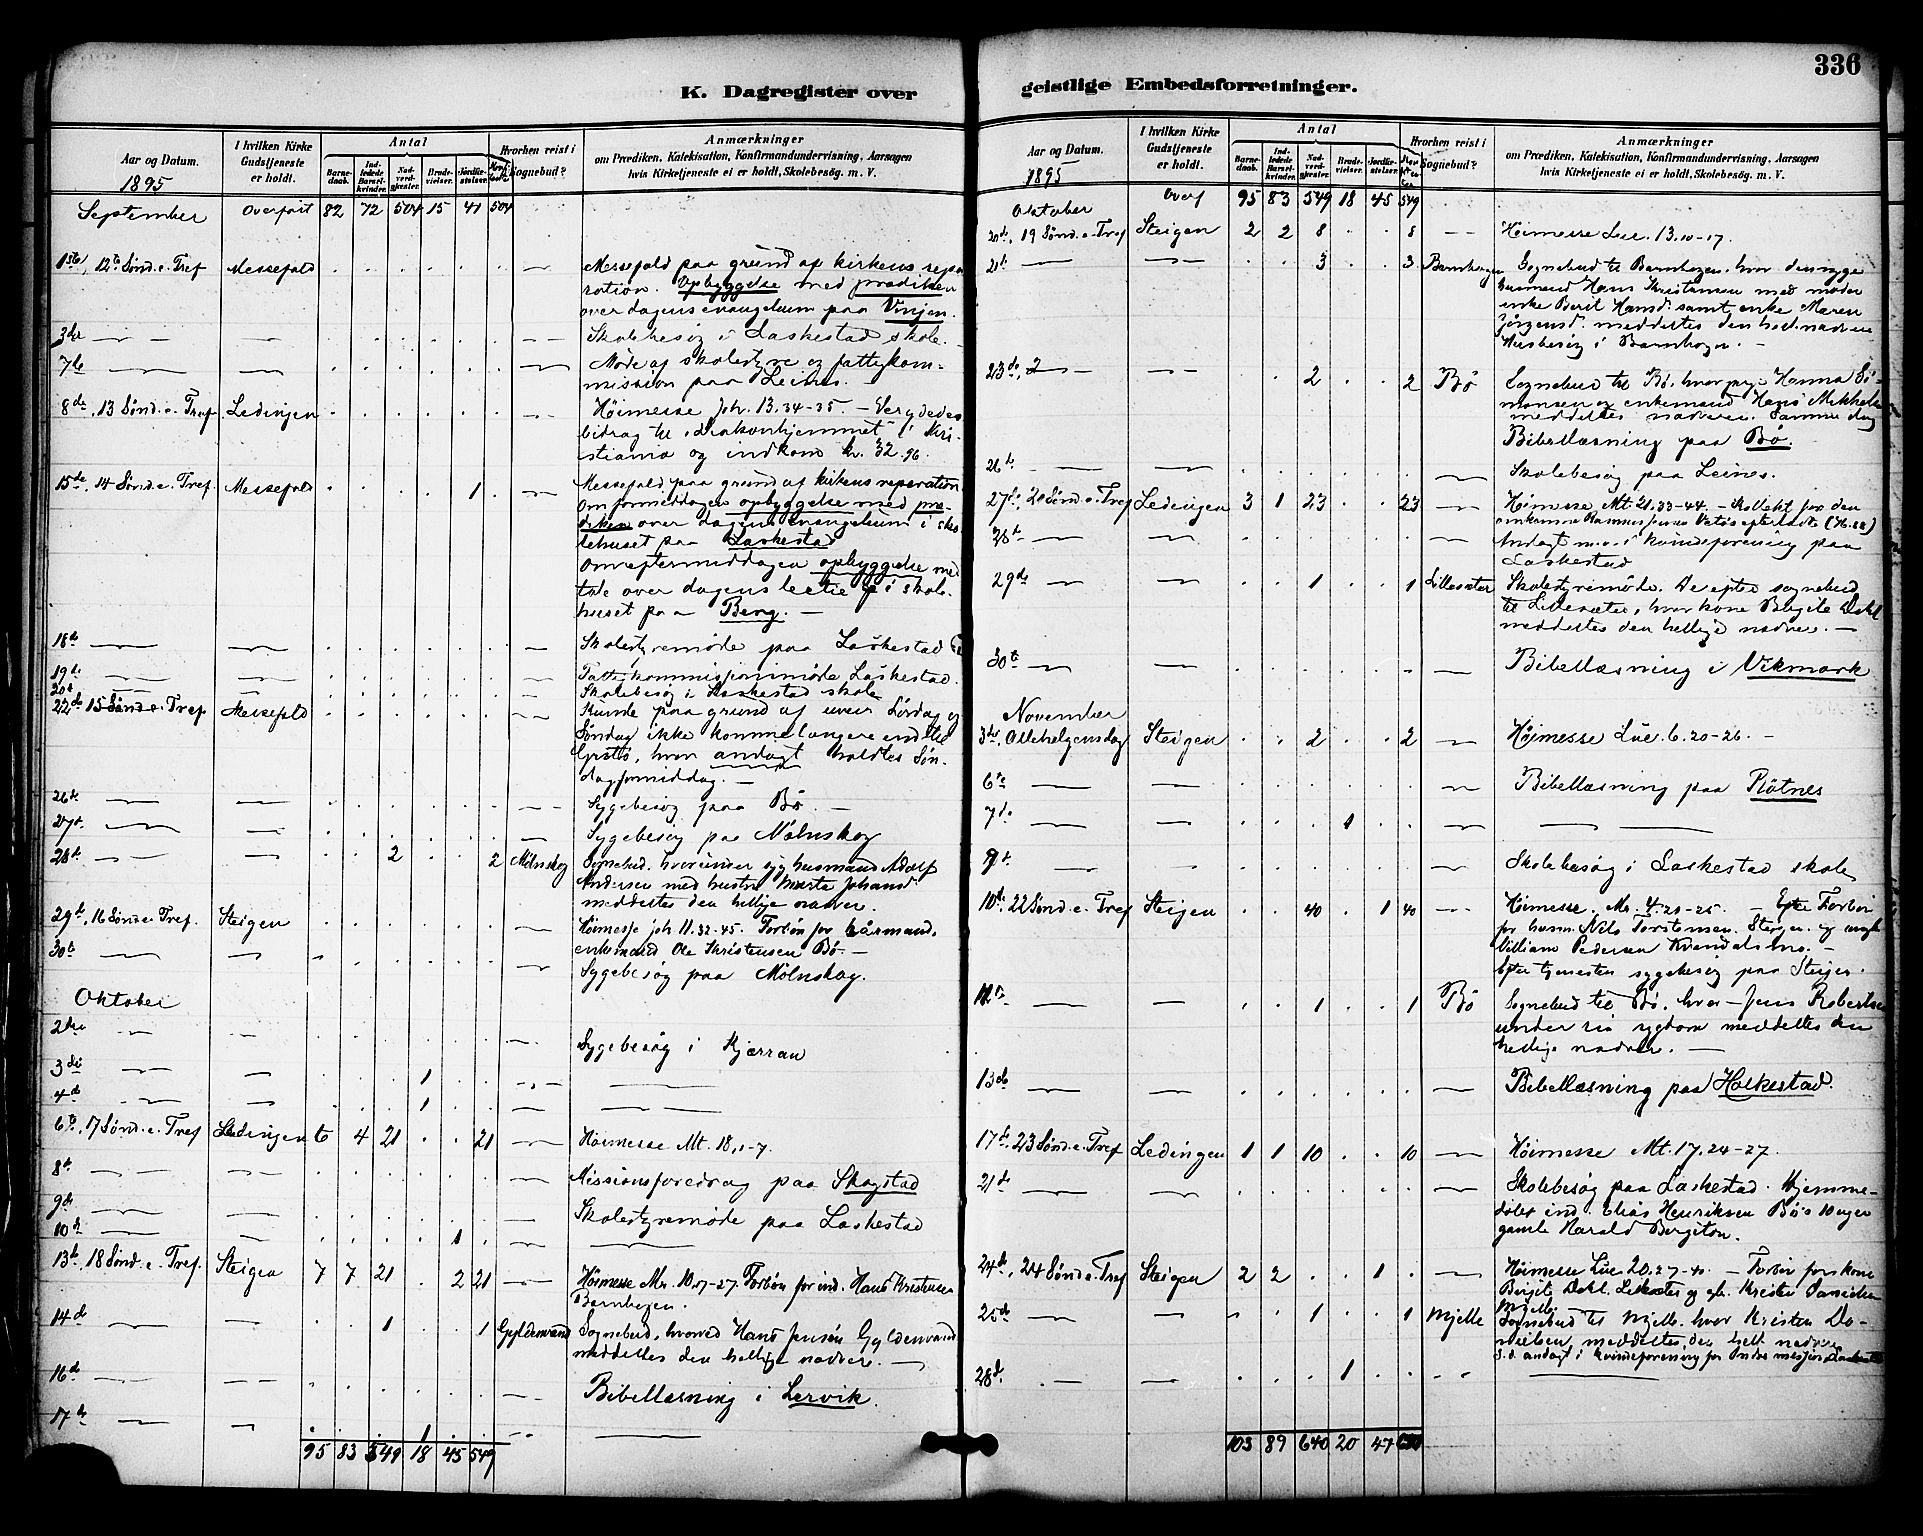 336
K. Dagregister over geistlige Embedsforretninger.
Aar og Datum.
1895
I hvilken Kirke
Gudstjeneste
er holdt.
Antal
Barne-
daab.
Ind-
ledede
Barsel-
kvinder.
Nad-
verd-
gjester.
Brude-
vielser.
Jordfæ-
stelser.
Hvorhen reist i
Sognebud?
Anmærkninger
om Prædiken, Katekisation, Konfirmandundervisning, Aarsagen
hvis Kirketjeneste ei er holdt, Skolebesøg. m. V.
September Overført 82 72 504 15 41 504
1ste, 12te Sønd. e. Tref Messefald Messefald paa grund af kirkens repa-
ration. Opbyggelse med prædiken
over dagens evangelium paa Vinjen.
3die Skolebesøg i Laskestad skole.
7de Møde af skolestyre og fattigkom-
mission paa Leines.
8de, 13 Sønd. e. Tref Ledingen Høimesse Joh. 13.34-35. -
bidrag til diakonhjemmet i Kri-
stiania og indkom kr. 32.96.
15de, 14 Sønd. e. Tref. Messefald 1 Messefald paa grund af kirkens reparation.
Om formiddagen opbyggelse med præ-
diken over dagens evangelium i sko-
lehuset paa Laskestad
Om eftermiddagen opbyggelse med
tale over dagens lectie i skole-
huset paa Berg. -
18de Skolestyremøde paa Laskestad
19de Fattigkommissionsmøde Laskestad.
20de Skolebesøg i Laskestad skole
22de 15 Sønd. e. Tref. Messefald Kunde paa grund af uveir Lørdag og
Søndag ikke komme længere end til
hvor andagt holdtes Søn-
dagformiddag. -
26de Sygebesøg paa Bø. -
27de Sygebesøg paa Mølnskog
28de 2 2 Mølnskog Sognebud. hvorunder syg husmand Adolf
Andersen med hustru Marta Johansd.
meddeltes den hellige nadver.
29de, 16 Sønd. e. Tref. Steigen Høimesse Joh. 11.32-45. Forbøn for
enkemand Ole Kristensen Bø. -
30te Sygebesøg paa Mølnskog.
Oktober
2den Sygebesøg i Kjerran
3die 1
4de 1
6te, 17 Sønd. e. Tref Ledingen 6 4 21 21 Høimesse Mt. 18,1-7.
8de Missionsforedrag paa Skagstad
9de Skolestyremøde paa Laskestad
10de 1
13de, 18 Sønd. e. Tref. Steigen 7 7 21 2 21 Høimesse Mr. 10.17-27. Forbøn for ind. Hans Kristensen
Barnhagen.
14de 1 1 Gyldenvand Sognebud, hvorved Hans Jensen Gyldenvand
meddeltes den hellige nadver. -
16de Bibellæsning i Lervik.
17de 1
95 83 549 18 45 549
Aar og Datum.
1895
I hvilken Kirke
Gudstjeneste
er holdt.
Antal
Barne-
daab.
Ind-
ledede
Barsel-
kvinder.
Nad-
verd-
gjester.
Brude-
vielser.
Jordfæ-
stelser.
Hvorhen reist i
Sognebud?
Anmærkninger
om Prædiken, Katekisation, Konfirmandundervisning, Aarsagen
hvis Kirketjeneste ei er holdt, Skolebesøg. m. V.
Oktober Overf 95 83 549 18 45 549
20de, 19 Sønd. e. Tref Steigen 2 2 8 8 Høimesse Luc. 13.10-17.
21de 3 3 Barnhagen Sognebud til Barnhagen, hvor den syge
husmand Hans Kristensen med moder
enke Berit Hansd. samt enke Maren
Jörgensd. meddeltes den hell. nadver
Husbesøg i Barnhagen. -
23de 2 2 Bø Sognebud til Bø, hvor pige Hanna Si-
monsen og enkemand Hans Mikkels.
meddeltes nadveren. Samme dag
Bibellæsning paa Bø.
26de Skolebesøg paa Leines.
27de, 20 Sønd. e. Tref Ledingen 3 1 23 23 Høimesse, Mt. 21.33-44. - for den
omkomne Rasmus efterladte
28de Andagt m.v. i kvindeforening paa
Laskestad
29de 1 1 Lillesæter Skolestyremøde. Derefter sognebud
til Lillesæter, hvor kone Birgite Dahl
meddeltes den hellige nadver. -
30te Bibellæsning i Vikmark
November
3die, Allehelgensdag Steigen 2 2 Høimesse Luc. 6.20-26. -
6te Bibellæsning paa Røtnes
7de 1
9de Skolebesøg i Laskestad skole
10de, 22 Sønd. e. Tref Steigen 40 1 40 Høimesse. Mr. 4.21-25. - Efter Forbøn
for husm. Nils Torstensen. Steigen. og ungk.
Villiam Pedersen -
Efter tjenesten sygebesøg paa Steigen.
12te 1 1 Bø Sognebud til Bø, hvor Jens Robertsen
under sin sygdom meddeltes den
hellige nadver. -
13de Bibellæsning paa Holkestad.
17de, 23 Sønd. e. Tref Ledingen 1 1 10 10 Høimesse Mt. 17.24-27.
21de Skolebesøg paa Laskestad. Hjemme-
døbt ind. Elias Henriksen Bø's 10 uger
gamle Harald Bergiton.
24de, 24 Sønd. e. Tref Steigen 2 2 1 Høimesse Luc. 20.27-40. - Forbøn for kone
Birgite Dahl, Lillesæter og gb. Kristen Danielsen
Mjelle.
25de 1 1 Mjelle Sognebud til Mjelle, hvor Kristen Da-
nielsen meddeltes den hell. nadver
S.d. andagt i kvindeforening for
28de 1
103 89 640 20 47